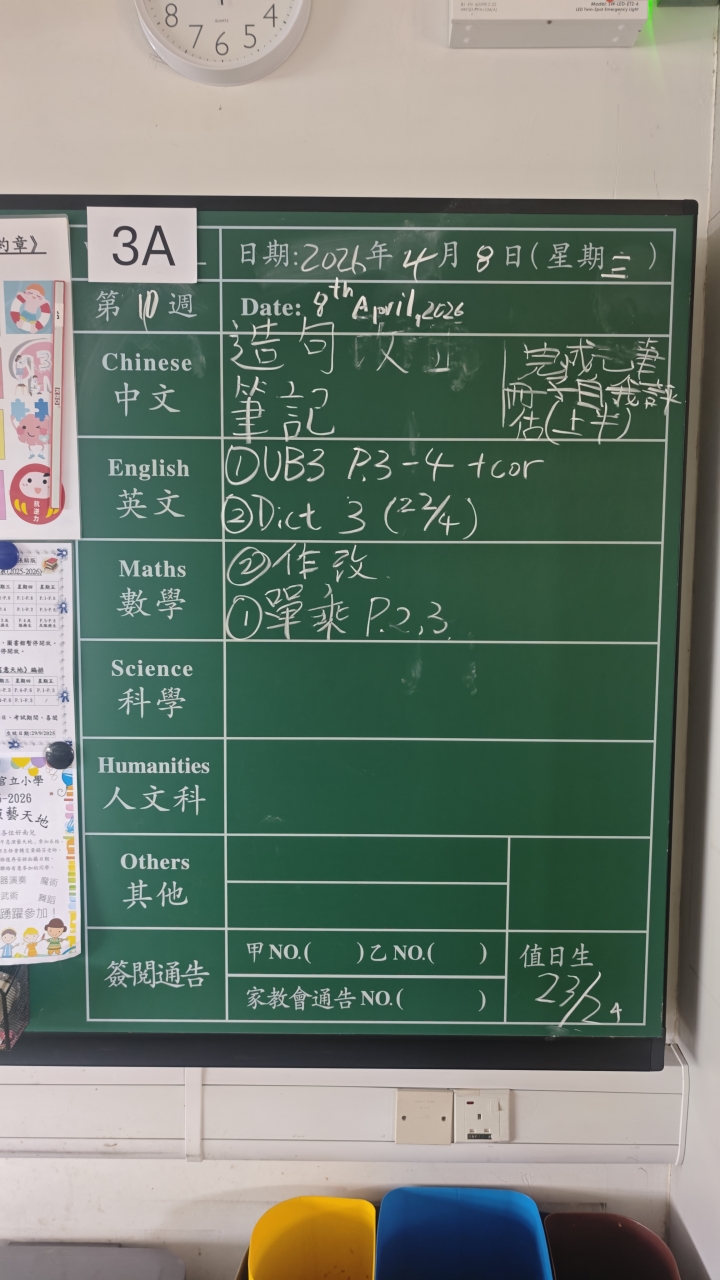 8
7 6 5 4
QUARTZ
LED Twin Spot Emergency Light
約章》
3A
日期:2026年4月8日(星期三)
第10週
Date: 8th April, 2026
Chinese
中文
造句改正
筆記
完成元筆
冊子自我評
估(上半)
English
英文
①UB3 P.3-4 +cor
②Dict 3 (22/4)
Maths
數學
②作改
①單乘 P.2,3
Science
科學
Humanities
人文科
Others
其他
簽閱通告
甲NO.( )乙NO.( )
家教會通告NO.( )
值日生
23/24
官立小學
藝天地
魔術
武術 舞蹈
踴躍參加！